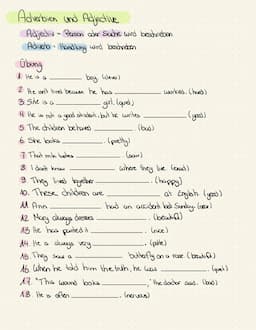 Adverbien und Adjective
Adjectiv - Person oder Sache wird beschrieben
Adverb - Handlung wird beschrieben
Übung
1. He is a ________ boy. (clever)
2. He isn't tired because he has ________ worked. (hard)
3. She is a ________ girl. (good)
4. He is not a good student, but he writes ________ (good)
5. The children behaved ________. (bad)
6. She looks ________. (pretty)
7. That milk tastes ________. (sour)
8. I don't know ________ where they live. (exact)
9. They lived together ________. (happy)
10. These children are ________ at English. (good)
11. Ann ________ had an accident last Sunday. (near)
12. Mary always dresses ________. (beautiful)
13. He has painted it ________. (nice)
14. He is always very ________. (polite)
15. They saw a ________ butterfly on a rose. (beautiful)
16. When he told him the truth, he was ________. (quiet)
17. "This wound looks ________", the doctor said. (bad)
18. He is often ________. (nervous)